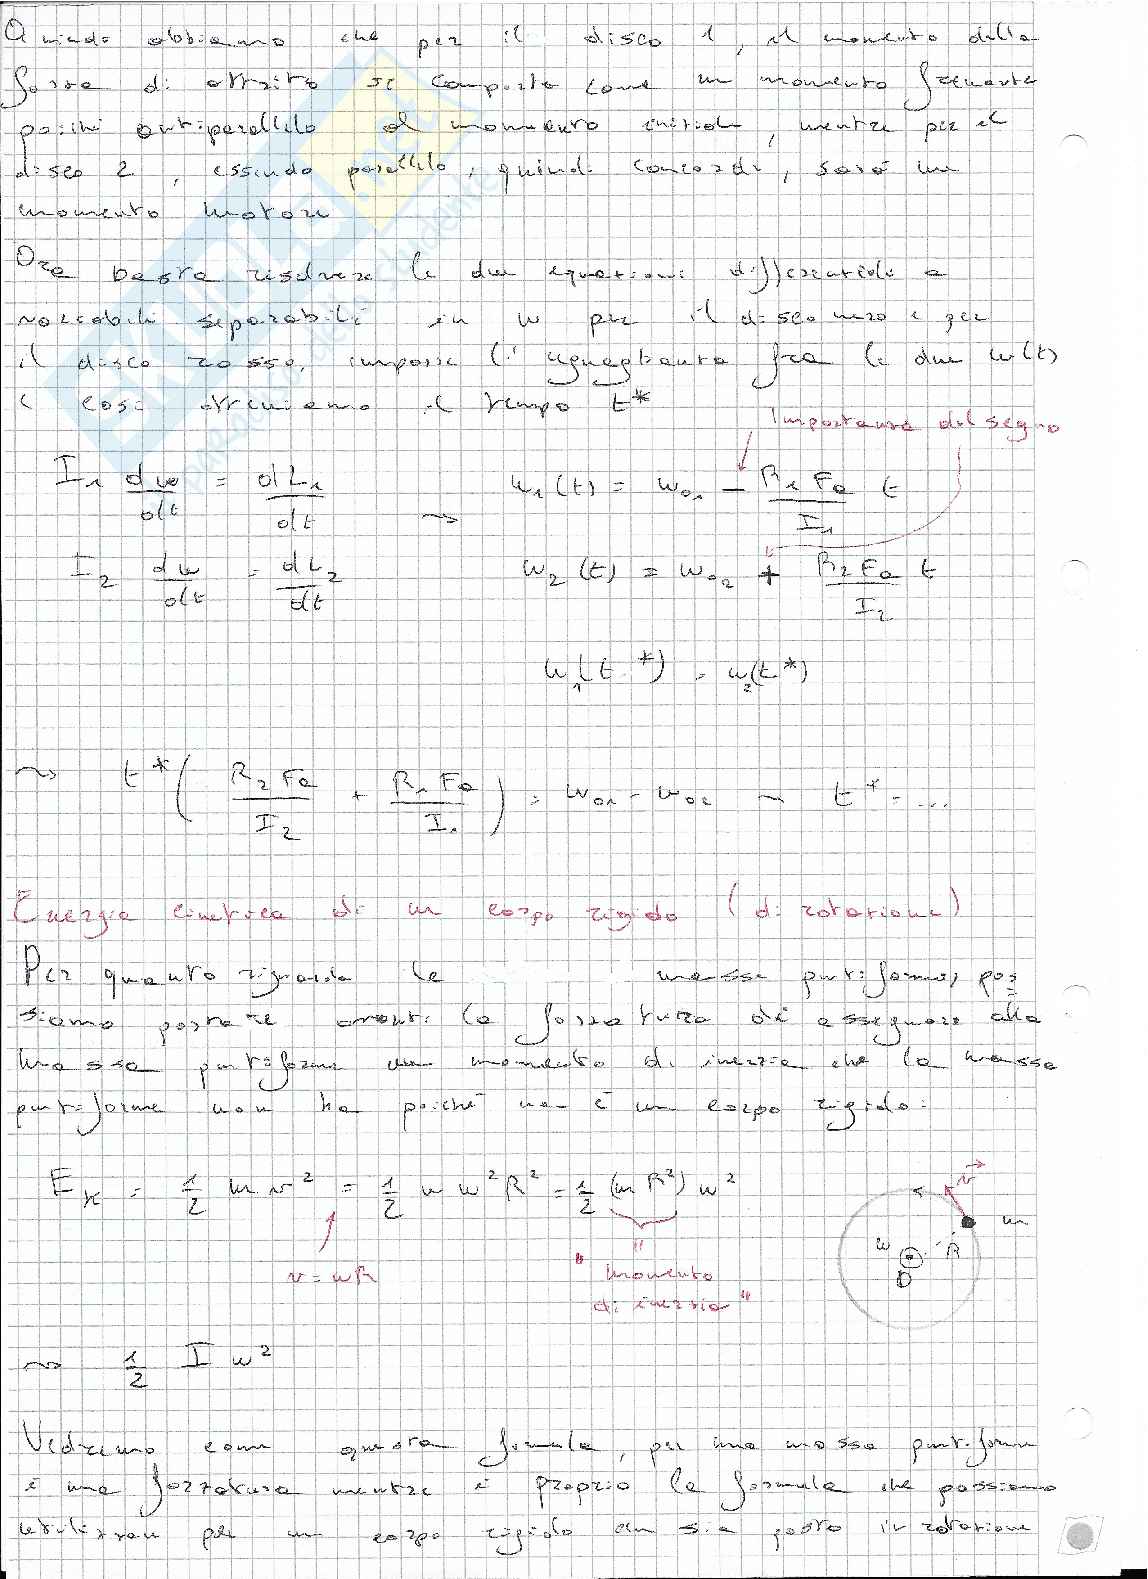 Quindi abbiamo che per il disco 1, il momento della
forza di attrito si comporta come un momento frenante
poiché antiparallelo al momento iniziale, mentre per il
disco 2, essendo parallelo, quindi concorde, sarà un
momento motore
Ora basta risolvere le due equazioni differenziali a
variabili separabili in w per il disco nero e per
il disco rosso, imporre l'uguaglianza fra le due w(t)
e così otteniamo il tempo t*
Importanza del segno
I₁ dw/dt = dL₁/dt ⇝ w₁(t) = w₀₁ − R₁Fa/I₁ t
I₂ dw/dt = dL₂/dt w₂(t) = w₀₂ + R₂Fa/I₂ t
w₁(t*) = w₂(t*)
⇝ t*( R₂Fa/I₂ + R₁Fa/I₁ ) = w₀₁ − w₀₂ ~ t* = ...
Energia cinetica di un corpo rigido (di rotazione)
Per quanto riguarda le masse puntiformi, pos=
siamo portare avanti la forzatura di assegnare alla
massa puntiforme un momento di inerzia che la massa
puntiforme non ha poiché non è un corpo rigido:
E_K = 1/2 m v² = 1/2 m w²R² = 1/2 (m R²) w²
v
m
w
R
O
v = wR
" momento
di inerzia "
⇝ 1/2 I w²
Vedremo come questa formula, per una massa puntiforme
è una forzatura mentre è proprio la formula che possiamo
utilizzare per un corpo rigido che sia posto in rotazione
SKUOLA.net